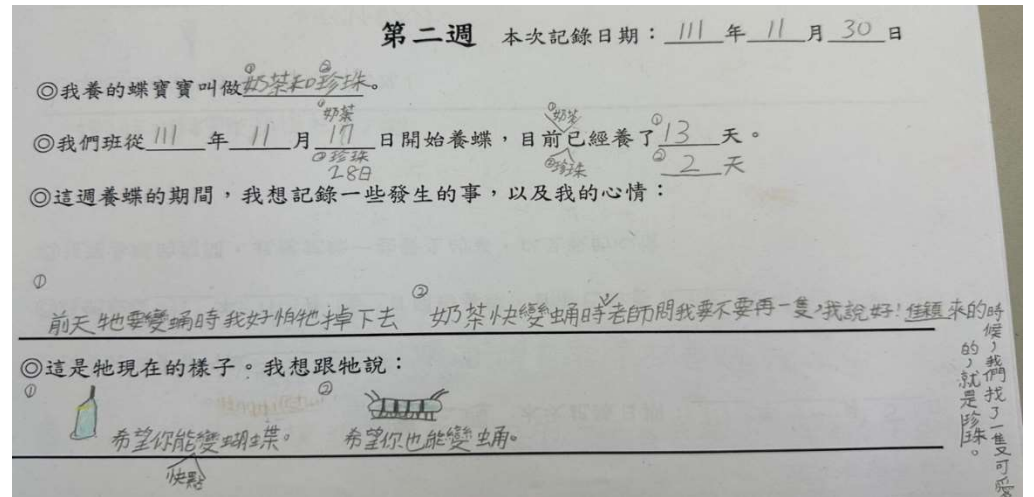 第二週 本次記錄日期：111年11月30日
◎我養的蝶寶寶叫做①奶茶和②珍珠。
①奶茶 ①奶茶
◎我們班從111年11月17日開始養蝶，目前已經養了①13天。
②珍珠 ②珍珠 ②2天
28日
◎這週養蝶的期間，我想記錄一些發生的事，以及我的心情：
① ②
前天牠要變蛹時我好怕牠掉下去 奶茶快變蛹時老師問我要不要再一隻，我說好！ 來的時候，我們找了一隻可愛的，就是珍珠。
◎這是牠現在的樣子。我想跟牠說：
① ②
希望你能變蝴蝶。 希望你也能變蛹。
快點